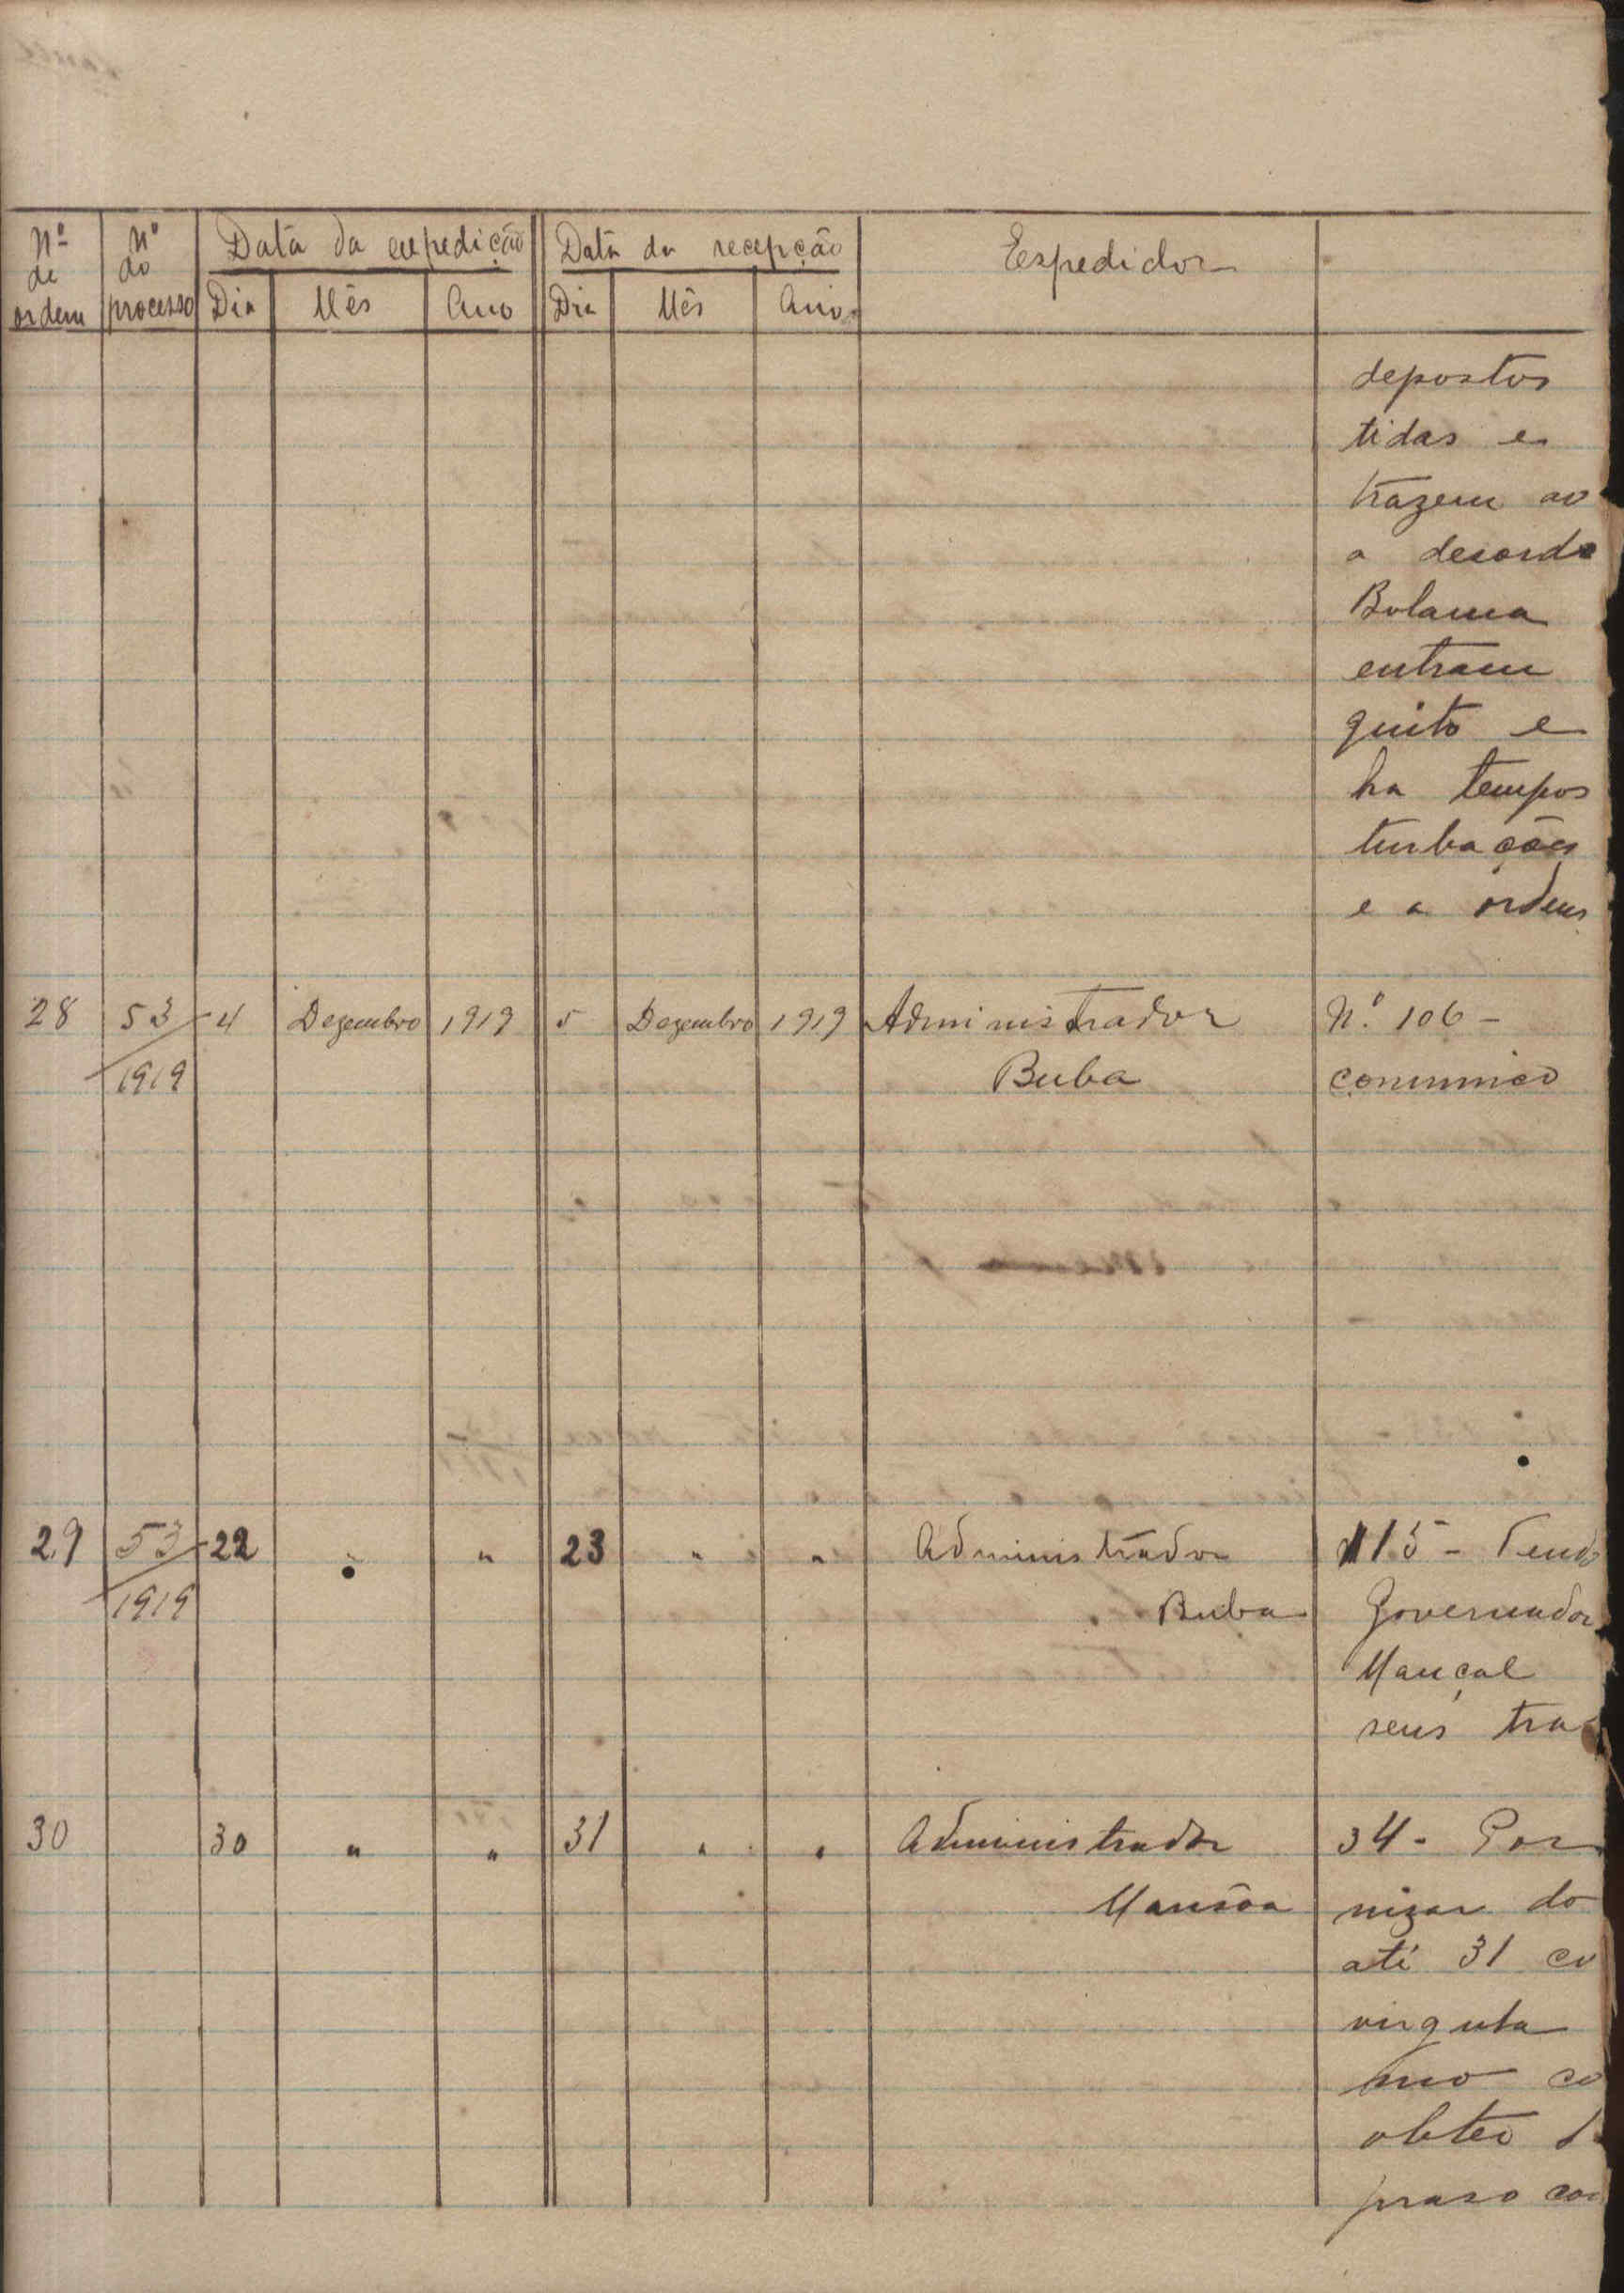 Nº de ordem Nº do processo Data da expedição Data da recepção Expedidor
Dia Mês Ano Dia Mês Ano
depostos
tidas e
trazem ao
a desorde
Bolama
entram
quito e
ha tempos
turbações
e a ordens
28 53/1919 4 Dezembro 1919 5 Dezembro 1919 Administrador Nº 106 -
Buba comunico
29 53/1919 22 " " 23 " " Administrador 115 - Tendo
Buba Governador
Mançal
seus tra
30 30 " " 31 " " Administrador 34 - Por
Mansôa nizar do
até 31 co
virgula
mo co
obter
praso con